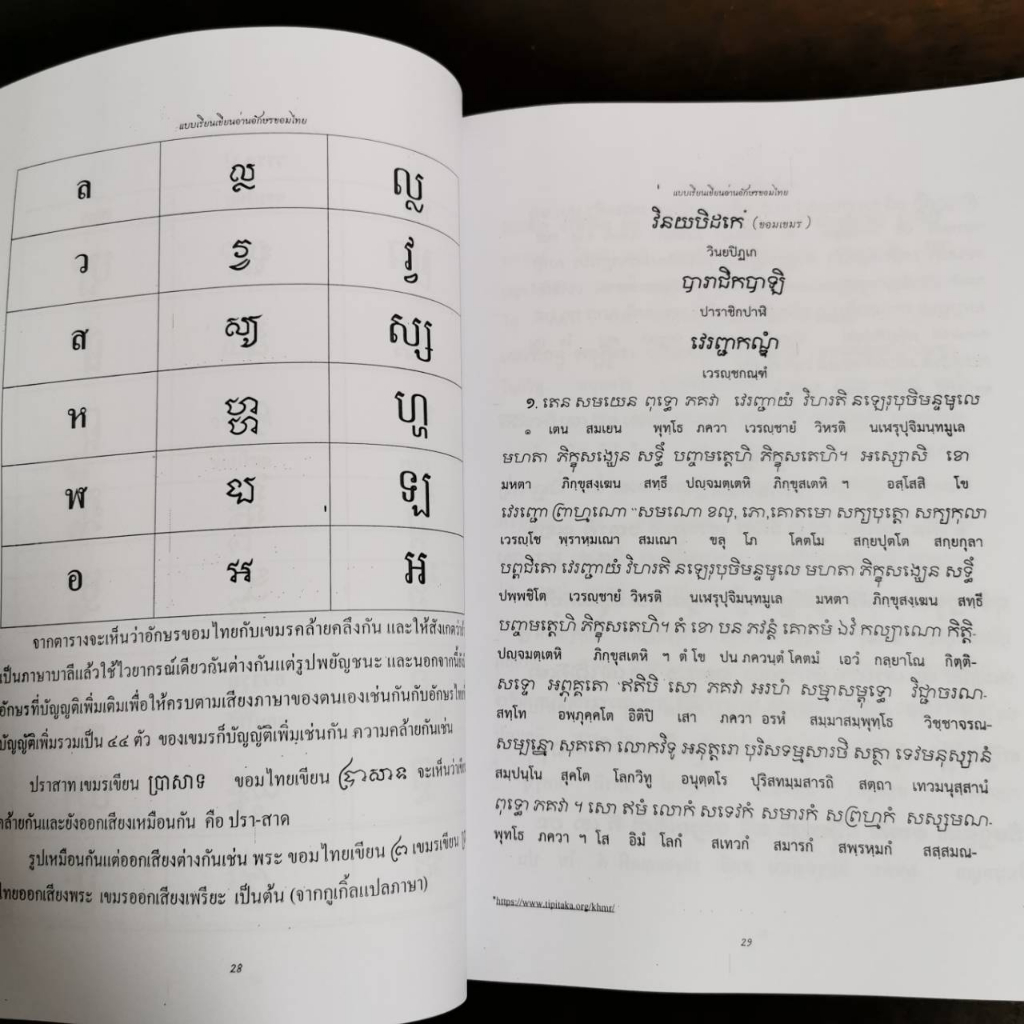 แบบเรียนเขียนอ่านอักษรขอมไทย
ล ល្ល
ว វ្វ
ส ស្ស
ห ហ្ហ
ฬ ឡ
อ អ
จากตารางจะเห็นว่าอักษรขอมไทยกับเขมรคล้ายคลึงกัน และให้สังเกตว่า
เป็นภาษาบาลีแล้วใช้ไวยากรณ์เดียวกันต่างกันแต่รูปพยัญชนะ และนอกจากนี้
อักษรที่บัญญัติเพิ่มเติมเพื่อให้ครบตามเสียงภาษาของตนเองเช่นกันกับอักษรไทย
บัญญัติเพิ่มรวมเป็น ๔๔ ตัว ของเขมรก็บัญญัติเพิ่มเช่นกัน ความคล้ายกันเช่น
ปราสาท เขมรเขียน ប្រាសាទ ขอมไทยเขียน จะเห็นว่า
คล้ายกันและยังออกเสียงเหมือนกัน คือ ปรา-สาด
รูปเหมือนกันแต่ออกเสียงต่างกันเช่น พระ ขอมไทยเขียน เขมรเขียน
ไทยออกเสียงพระ เขมรออกเสียงเพรียะ เป็นต้น (จากกูเกิ้ลแปลภาษา)
28
แบบเรียนเขียนอ่านอักษรขอมไทย
វិនយបិដកេ (ขอมเขมร)
วินยปิฏเก
បារាជិកបាឡិ
ปาราชิกปาฬิ
វេរញ្ជកណ្ឌំ
เวรญฺชกณฺฑํ
១. តេន សមយេន ពុទ្ធោ ភគវា វេរញ្ជាយំ វិហរតិ នឡេរុបុចិមន្ទមូលេ
๑ เตน สมเยน พุทฺโธ ภควา เวรญฺชายํ วิหรติ นเฬรุปุจิมนฺทมูเล
មហតា ភិក្ខុសង្ឃេន សទ្ធិំ បញ្ចមត្តេហិ ភិក្ខុសតេហិ។ អស្សោសិ ខោ
มหตา ภิกฺขุสงฺเฆน สทฺธึ ปญฺจมตฺเตหิ ภิกฺขุสเตหิ ฯ อสฺโสสิ โข
វេរញ្ជោ ព្រាហ្មណោ “សមណោ ខលុ, ភោ,គោតមោ សក្យបុត្តោ សក្យកុលា
เวรญฺโช พฺราหฺมเณา สมเณา ขลุ โภ โคตโม สกฺยปุตฺโต สกฺยกุลา
បព្ពជិតោ វេរញ្ជាយំ វិហរតិ នឡេរុបុចិមន្ទមូលេ មហតា ភិក្ខុសង្ឃេន សទ្ធិំ
ปพฺพชิโต เวรญฺชายํ วิหรติ นเฬรุปุจิมนฺทมูเล มหตา ภิกฺขุสงฺเฆน สทฺธึ
បញ្ចមត្តេហិ ភិក្ខុសតេហិ។ តំ ខោ បន ភវន្តំ គោតមំ ឯវំ កល្យាណោ កិត្តិ-
ปญฺจมตฺเตหิ ภิกฺขุสเตหิ ฯ ตํ โข ปน ภวนฺตํ โคตมํ เอวํ กลฺยาโณ กิตฺติ-
សទ្ទោ អព្ភុគ្គតោ ឥតិបិ សោ ភគវា អរហំ សម្មាសម្ពុទ្ធោ វិជ្ជាចរណ-
สทฺโท อพฺภุคฺคโต อิติปิ เสา ภควา อรหํ สมฺมาสมฺพุทฺโธ วิชฺชาจรณ-
សម្បន្នោ សុគតោ លោកវិទូ អនុត្តរោ បុរិសទម្មសារថិ សត្ថា ទេវមនុស្សានំ
สมฺปนฺโน สุคโต โลกวิทู อนุตฺตโร ปุริสทมฺมสารถิ สตฺถา เทวมนุสฺสานํ
ពុទ្ធោ ភគវា ។ សោ ឥមំ លោកំ សទេវកំ សមារកំ សព្រហ្មកំ សស្សមណ-
พุทฺโธ ภควา ฯ โส อิมํ โลกํ สเทวกํ สมารกํ สพฺรหฺมกํ สสฺสมณ-
*https://www.tipitaka.org/khmr/
29